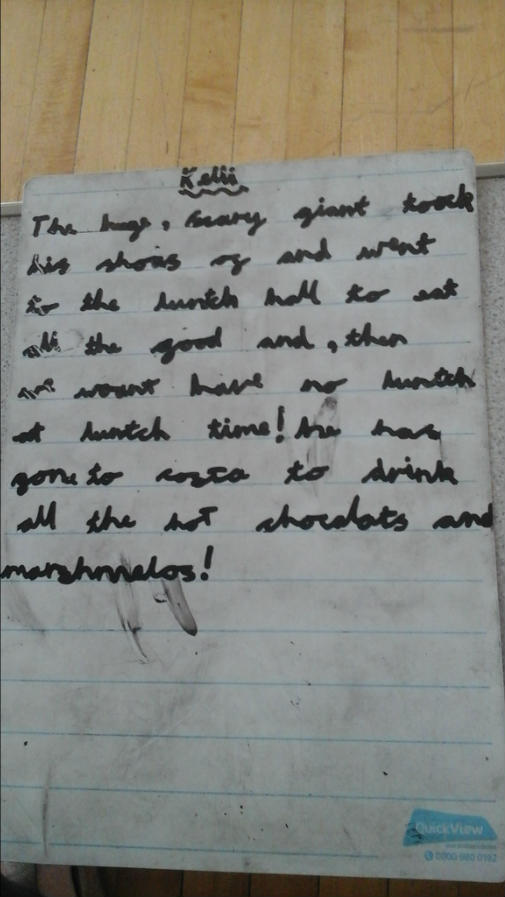 Kelli
The huge, scary giant toock
his shoas of and went
to the luntch hall to eat
all the good and, then
we wount have no luntch
at luntch time! he has
gone to cozta to drink
all the hot chocolats and
marshmelos!
QuickView
0800 980 0182